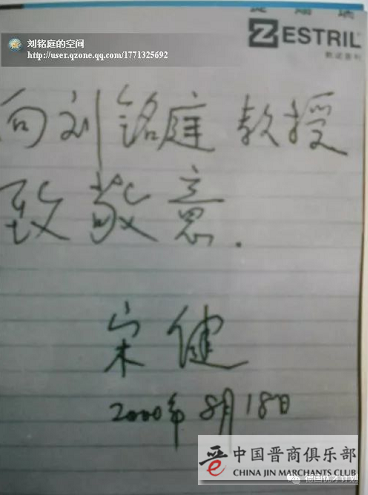 ZESTRIL
刘铭庭的空间
http://user.qzone.qq.com/1771325692
向刘铭庭教授
致敬意.
宋健
2000年8月18日
晋 中国晋商俱乐部
CHINA JIN MERCHANTS CLUB